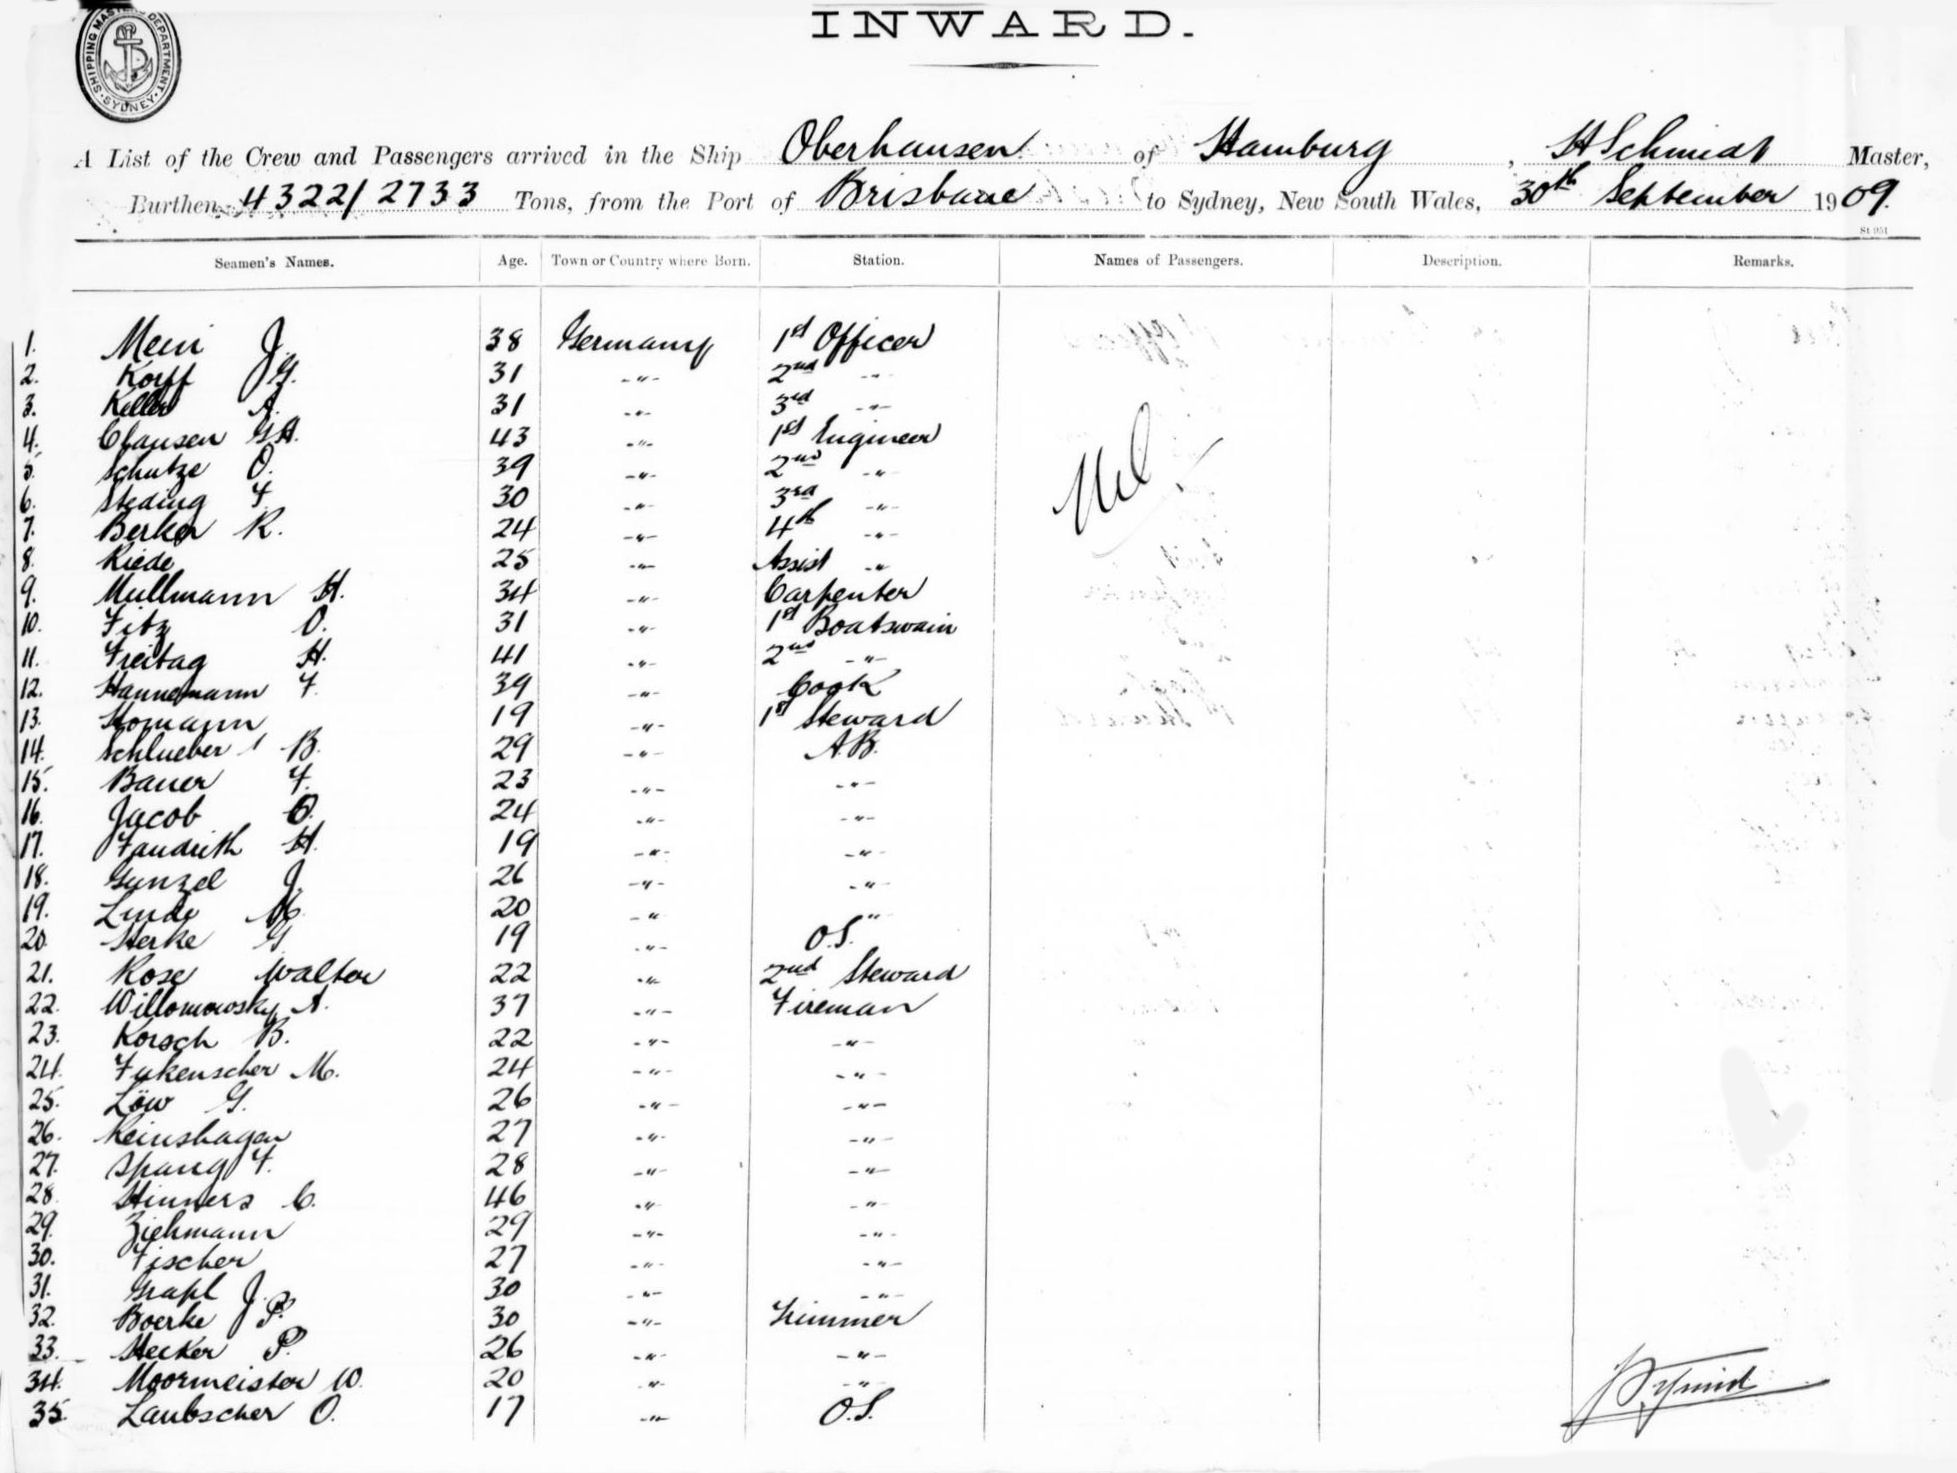 SHIPPING MASTERS DEPARTMENT · SYDNEY ·
INWARD.
A List of the Crew and Passengers arrived in the Ship Oberhausen of Hamburg, H Schmidt Master,
Burthen 4322/2733 Tons, from the Port of Brisbane to Sydney, New South Wales, 30th September 1909.
St 951
Seamen's Names. Age. Town or Country where Born. Station. Names of Passengers. Description. Remarks.
1. Mein J. 38 Germany 1st Officer
2. Korff G. 31 -"- 2nd -"-
3. Keller A. 31 -"- 3rd -"-
4. Clausen G.A. 43 -"- 1st Engineer
Nil
5. Schutze O. 39 -"- 2nd -"-
6. Steding F. 30 -"- 3rd -"-
7. Berker R. 24 -"- 4th -"-
8. Riede 25 -"- Assist -"-
9. Mullmann H. 34 -"- Carpenter
10. Fitz O. 31 -"- 1st Boatswain
11. Freitag H. 41 -"- 2nd -"-
12. Hannemann F. 39 -"- Cook
13. Homann 19 -"- 1st Steward
14. Schlueber B. 29 -"- A.B.
15. Bauer F. 23 -"- -"-
16. Jacob O. 24 -"- -"-
17. Fandrith H. 19 -"- -"-
18. Gunzel J. 26 -"- -"-
19. Linde M. 20 -"- "
20. Herke G. 19 -"- O.S.
21. Rose Walter 22 -"- 2nd Steward
22. Willomowsky A. 37 -"- Fireman
23. Korsch B. 22 -"- -"-
24. Fukenscher M. 24 -"- -"-
25. Löw G. 26 -"- -"-
26. Reinshagen 27 -"- -"-
27. Spang F. 28 -"- -"-
28. Hinners C. 46 -"- -"-
29. Ziehmann 29 -"- -"-
30. Fischer 27 -"- -"-
31. Grahl J. 30 -"- -"-
32. Boerke P. 30 -"- Trimmer
33. Hecker P. 26 -"- -"-
34. Moormeister W. 20 -"- -"-
35. Laubscher O. 17 -"- O.S.